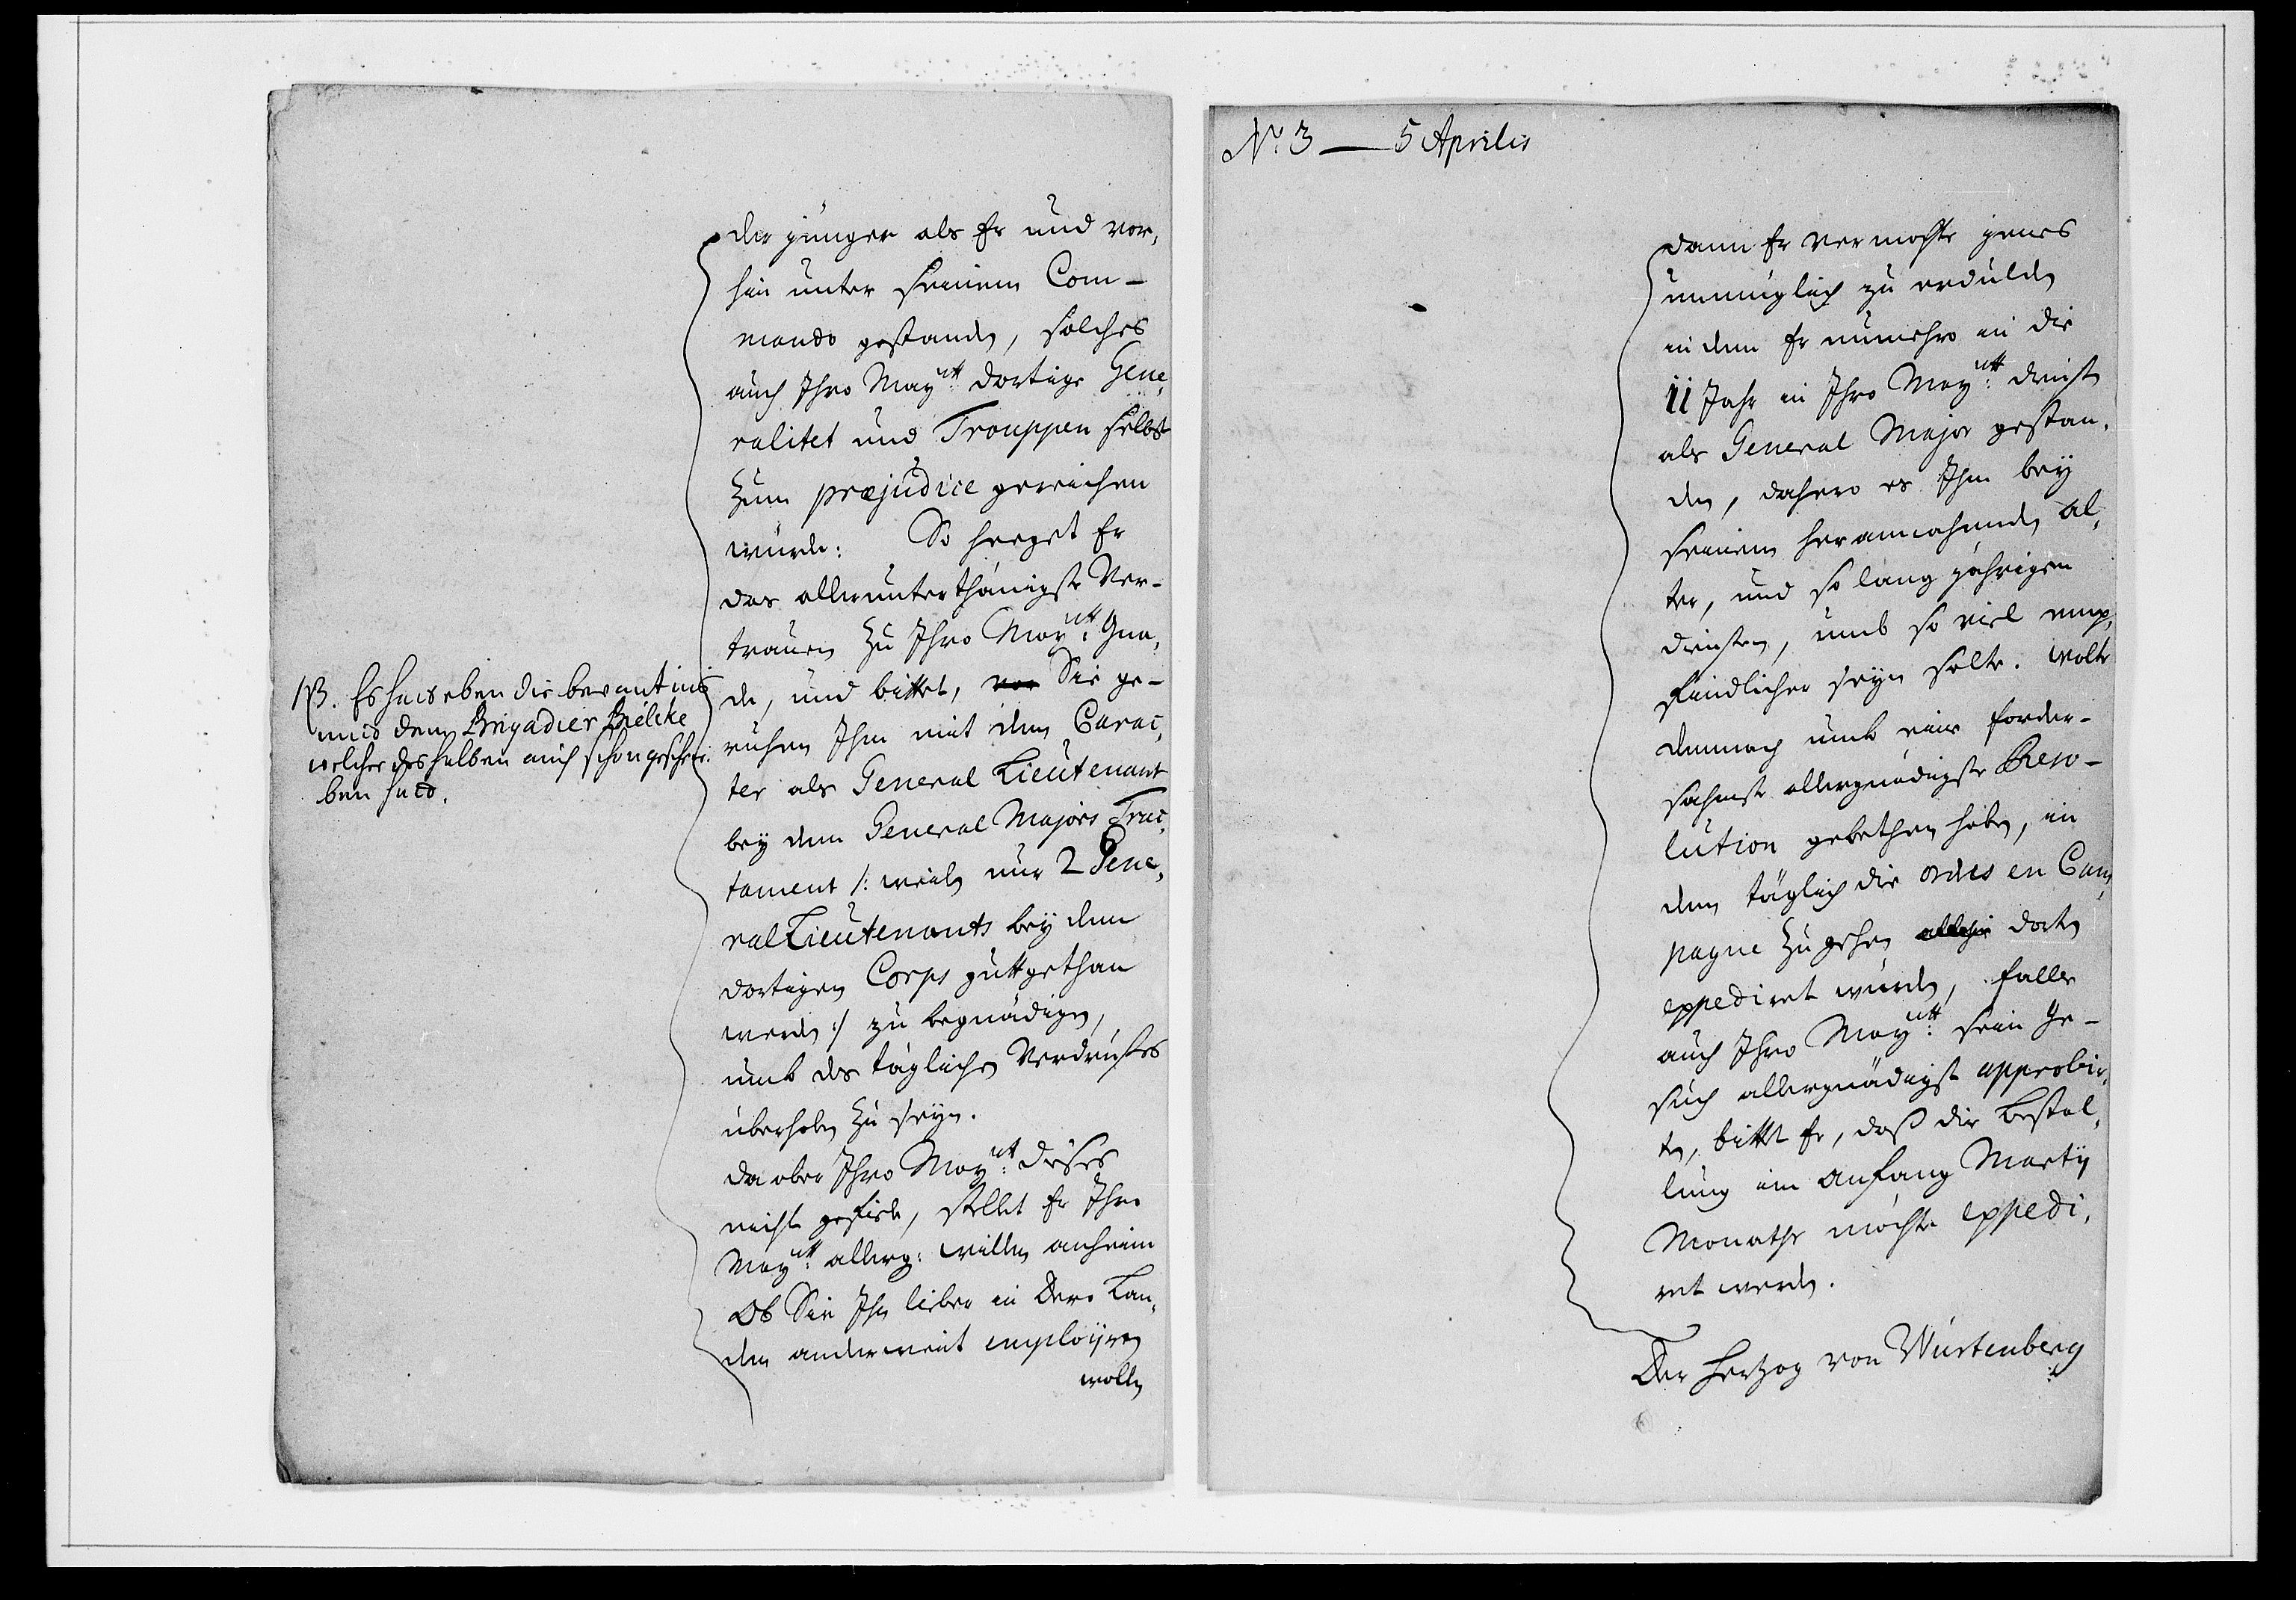 der jünger als Er und vor,
hin unter seinem Com-
mando gestanden, solches
auch Ihro Maytt: dortige Gene,
ralitet und Trouppen selbst
zum præjudice gereichen
würde: So heeget Er
das allerunterthänigste Ver-
trauen zu Ihro Maytt: Gna,
de, und bittet, Sie ge-
ruhen Ihm mit dem Carac,
ter als General Lieutenant
bey dem General Majors Trac,
tament /: weilen nur 2 Gene,
ral Lieutenants bey dem
dortigen Corps guttgethan
werden :/ zu begnädigen,
umb des täglichen Verdrußes
überhoben zu seyn.
Da aber Ihro Maytt: dieses
nicht gefiele, stellet Er Ihro
Maytt: allerg: willen anheim
Ob Sie Ihn lieber in Dero Lan,
den anderweit employren
wollen
NB. Es hat eben die bewantnis
mit dem Brigadier Bielcke
welcher deshalben auch schon geschrie,
ben hatt.
No. 3 — 5 Aprilis
dann Er vermochte jenes
unmüglich zu erdulden
in dem Er nunmehro in die
11 Jahr in Ihro Maytt: dienst
als General Major gestan,
den, dahero es Ihm bey
seinem herannahenden Al,
ter, und so lang jährigen
diensten, umb so viel emp,
findlicher seyn solte. Wolte
demnach umb eine forder-
sahmste allergnädigste Reso-
lution gebethen haben, in
dem täglich die ordres en Cam,
pagne zu gehen dorten
expediret würden, falls
auch Ihro Maytt: sein Ge-
such allergnädigst approbir,
ten, bittet Er, daß die Bestal,
lung im Anfang Martij
Monaths möchte expedi,
ret werden.
Der Hertzog von Würtenberg